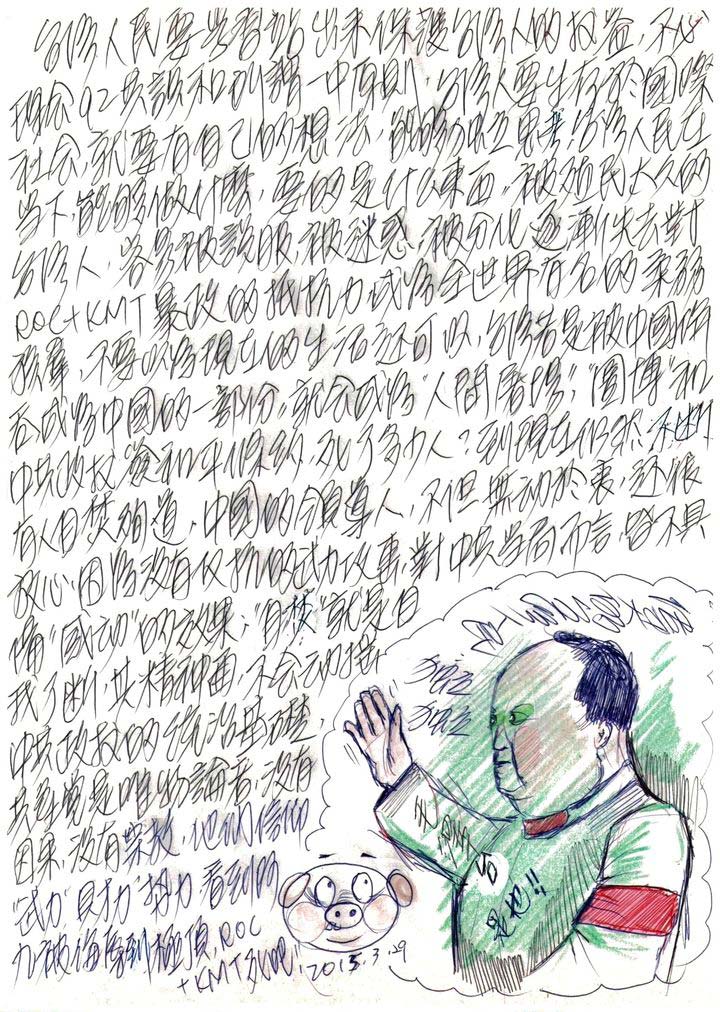 台灣人民要覺醒站出來保護台灣人的权益，不必
理会92共識和所謂一中原則，台灣人要生存於國際
社会，就要有自己的想法，能夠独立思考！台灣人民在
當下，能夠做什麼，要的是什么東西，被殖民太久的
台灣人，容易被說服，被迷惑，被分化，逐漸失去對
ROC+KMT暴政的抵抗力，成為全世界有名的柔弱
族羣，不要以為現在的生活还可以，台灣若是被中國併
吞成為中國的一部份，就会成為"人間屠場"；"圖博"和
中共政权簽和平條約，死了多少人？到現在仍然不断
有人自焚殉道，中國的領導人，不但無动於衷，还很
放心，因為沒有反抗的武力攻擊，對中共當局而言，皆不具
備"感动"的效果；"自焚"就是自
我了断，其精神面，不会动搖
中共政权的统治基礎，
共產党是唯物論者，沒有
因果，沒有宗教，他們信仰
"武力" "財力" "势力"看到的
ROC
+KMT
2015.3.29
是也!!